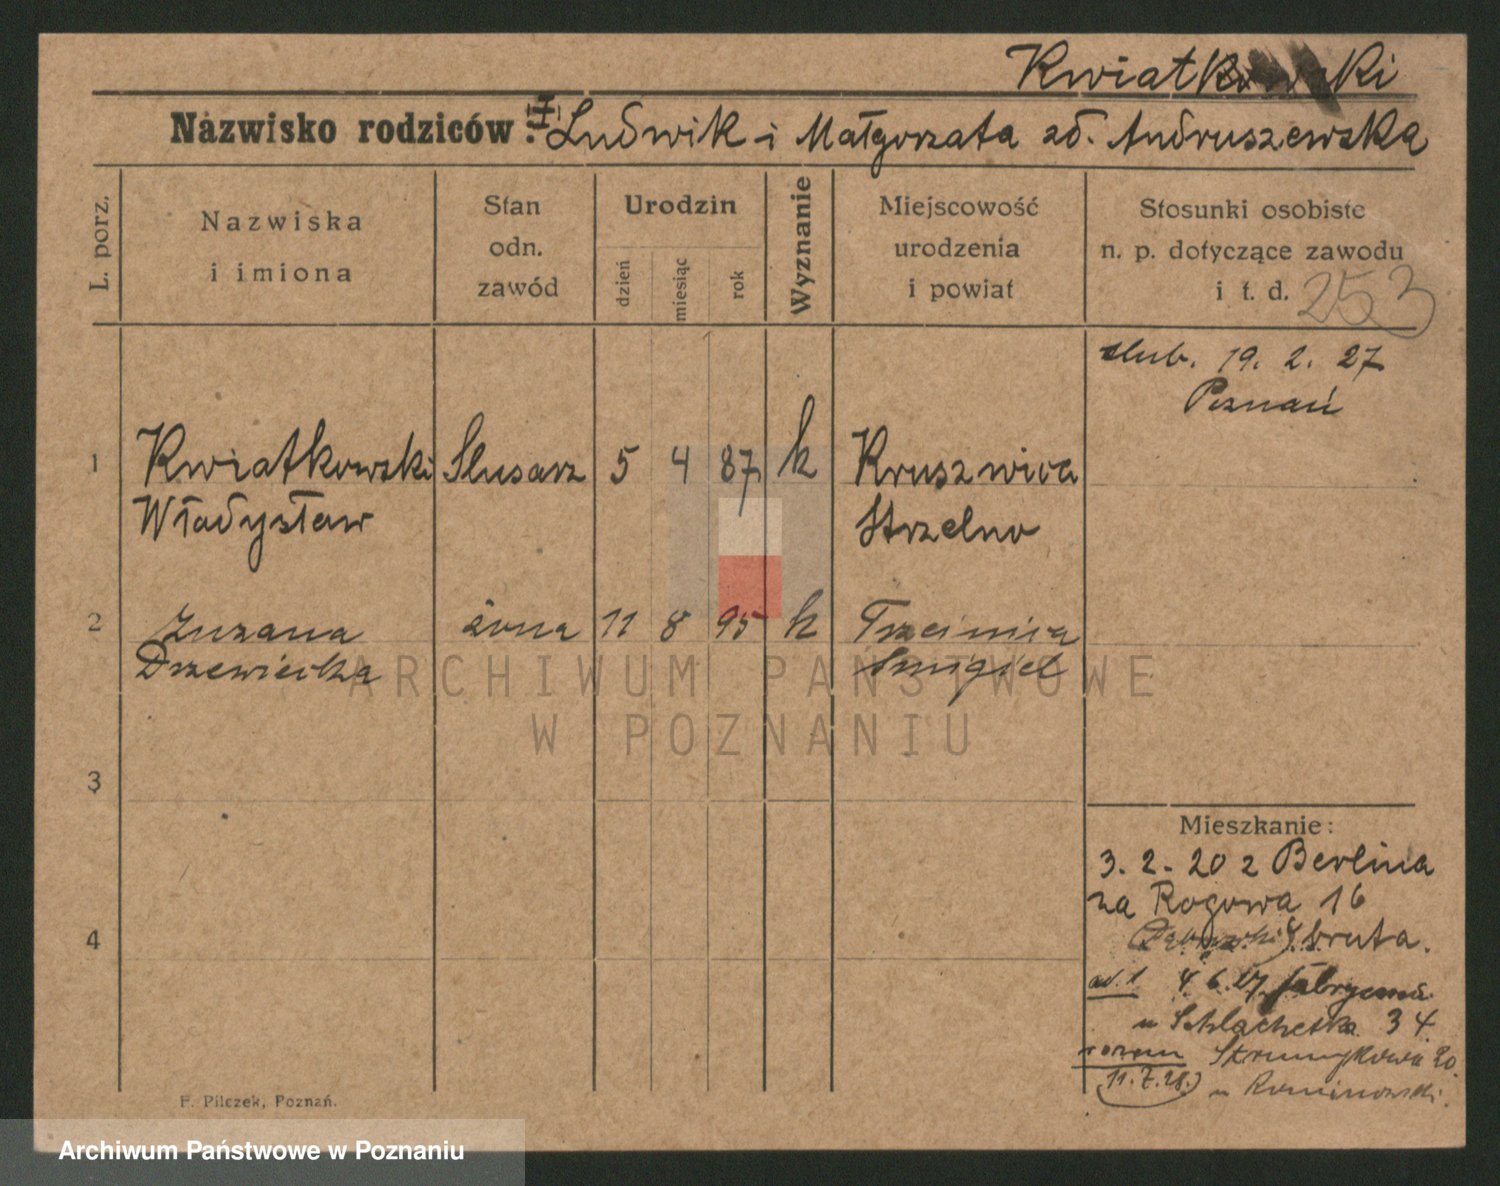 Kwiatkowski
Nazwisko rodziców : Ludwik i Małgorzata zd. Andruszewska
L. porz.
Nazwiska
i imiona
Stan
odn.
zawód
Urodzin
dzień
miesiąc
rok
Wyznanie
Miejscowość
urodzenia
i powiat
Stosunki osobiste
n. p. dotyczące zawodu
i t. d. 253
slub. 19. 2. 27
Poznań
1 Kwiatkowski Slusarz 5 4 87 k Kruszwica
Władysław Strzelno
2 Zuzana żona 11 8 95 k Trzcinica
Drzewiecka Smigiel
3
4
Mieszkanie:
3. 2. 20 z Berlina
za Rogowa 16
bruta.
ad. 1 4. 6. 27
u Szlachetka 34
razem Strumykowa 20.
11. 7. 28.) u Rominowski.
F. Pilczek, Poznań.
ARCHIWUM PAŃSTWOWE
W POZNANIU
Archiwum Państwowe w Poznaniu